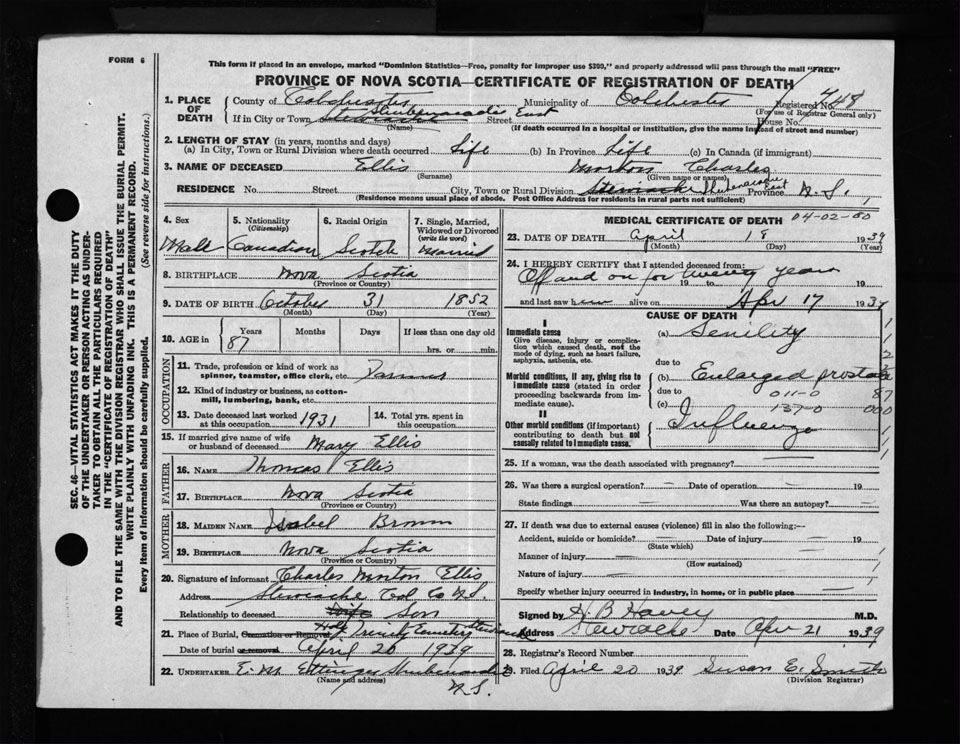 FORM 6
This form if placed in an envelope, marked "Dominion Statistics—Free, penalty for improper use $300," and properly addressed will pass through the mail "FREE"
PROVINCE OF NOVA SCOTIA—CERTIFICATE OF REGISTRATION OF DEATH
1. PLACE OF DEATH
County of Colchester Municipality of Colchester Registered No. 748
(For use of Registrar General only)
If in City or Town Stewiacke Shubenacadie East Street House No.
(Name) (If death occurred in a hospital or institution, give the name instead of street and number)
2. LENGTH OF STAY (in years, months and days)
(a) In City, Town or Rural Division where death occurred Life (b) In Province Life (c) In Canada (if immigrant)
3. NAME OF DECEASED Ellis Morton Charles
(Surname) (Given name or names)
RESIDENCE No. Street City, Town or Rural Division Stewiacke Shubenacadie East N.S.
(Residence means usual place of abode. Post Office Address for residents in rural parts not sufficient)
4. Sex 5. Nationality (Citizenship) 6. Racial Origin 7. Single, Married, Widowed or Divorced (write the word)
Male Canadian Scotch Married
8. BIRTHPLACE Nova Scotia
(Province or Country)
9. DATE OF BIRTH October 31 1852
(Month) (Day) (Year)
10. AGE in Years Months Days If less than one day
87 hrs. or min.
OCCUPATION
11. Trade, profession or kind of work as spinner, teamster, office clerk, etc. Farmer
12. Kind of industry or business, as cotton-mill, lumbering, bank, etc.
13. Date deceased last worked at this occupation 1931 14. Total yrs. spent in this occupation
15. If married give name of wife or husband of deceased Mary Ellis
FATHER
16. NAME Thomas Ellis
17. BIRTHPLACE Nova Scotia
(Province or Country)
MOTHER
18. MAIDEN NAME Isabel Brown
19. BIRTHPLACE Nova Scotia
(Province or Country)
20. Signature of informant Charles Morton Ellis
Address Stewiacke Col Co N.S.
Relationship to deceased Wife Son
21. Place of Burial, Cremation or Removal Cemetery Stewiacke
Date of burial or removal April 20 1939
22. UNDERTAKER E. M. Ettinger Shubenacadie N.S.
(Name and address)
MEDICAL CERTIFICATE OF DEATH
04-02-50
23. DATE OF DEATH April 18 1939
(Month) (Day) (Year)
24. I HEREBY CERTIFY that I attended deceased from:
Off and on for twenty years 19 to 19
and last saw him alive on Apr 17 1939
CAUSE OF DEATH
I
Immediate cause
Give disease, injury or complication which caused death, not the mode of dying, such as heart failure, asphyxia, asthenia, etc.
(a) Senility
due to
Morbid conditions, if any, giving rise to immediate cause (stated in order proceeding backwards from immediate cause).
(b) Enlarged prostate
due to 011-0 87
(c) 137-0 000
II
Other morbid conditions (if important) contributing to death but not causally related to immediate cause.
Influenza
25. If a woman, was the death associated with pregnancy?
26. Was there a surgical operation? Date of operation 19
State findings Was there an autopsy?
27. If death was due to external causes (violence) fill in also the following:—
Accident, suicide or homicide? Date of injury 19
(State which)
Manner of injury
(How sustained)
Nature of injury
Specify whether injury occurred in industry, in home, or in public place
Signed by H B Havey M.D.
Address Stewiacke Date Apr 21 1939
28. Registrar's Record Number
29. Filed April 20 1939 Susan E. Smith
(Division Registrar)
SEC. 46—VITAL STATISTICS ACT MAKES IT THE DUTY
OF THE UNDERTAKER OR PERSON ACTING AS UNDER-
TAKER TO OBTAIN ALL THE PARTICULARS REQUIRED
IN THE "CERTIFICATE OF REGISTRATION OF DEATH"
AND TO FILE THE SAME WITH THE DIVISION REGISTRAR WHO SHALL ISSUE THE BURIAL PERMIT.
WRITE PLAINLY WITH UNFADING INK. THIS IS A PERMANENT RECORD.
Every item of information should be carefully supplied. (See reverse side for instructions.)